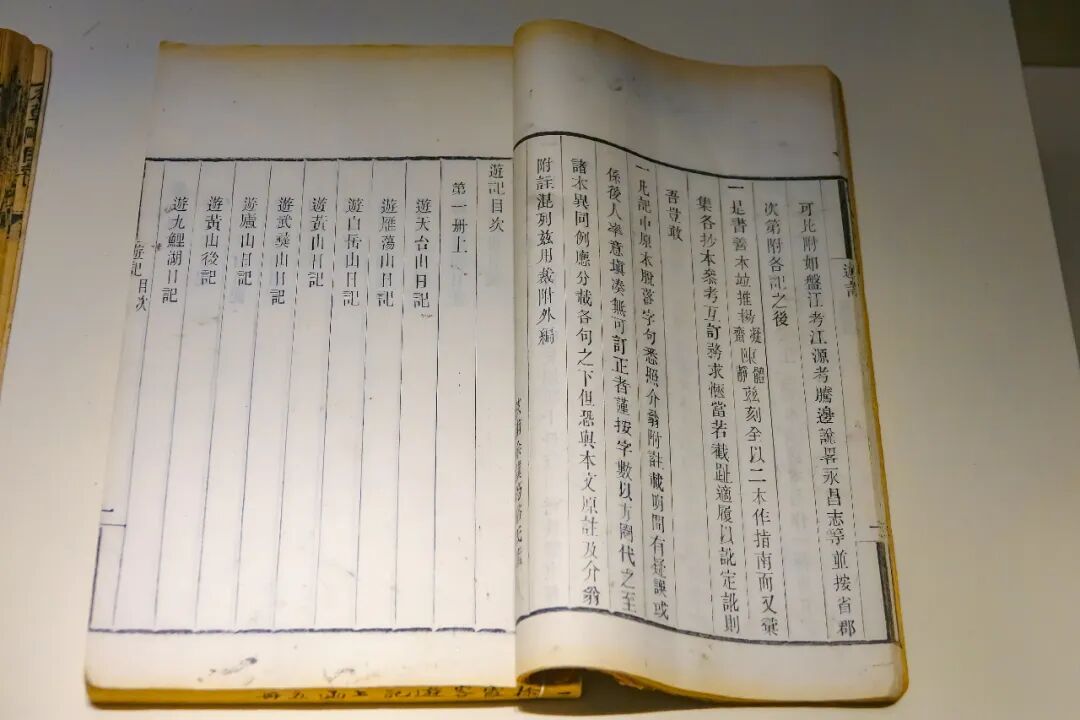 可比附如盤江考江源考騰邊說畧永昌志等並按省郡
次第附各記之後
一是書善本並推楊凝齋陳體靜茲刻全以二本作指南而又彙
集各抄本參考互訂務求愜當若截趾適履以訛定訛則
吾豈敢
一此記中原本脫落字句悉照介翁附註載明間有疑誤或
係後人率意填湊無可訂正者謹按字數以方圈代之至
諸本異同例應分載各句之下但恐與本文原註及介翁
附註混列茲用裁附外編
遊記目次
第一册上
遊天台山日記
遊雁蕩山日記
遊白岳山日記
遊黃山日記
遊武彝山日記
遊廬山日記
遊黃山後記
遊九鯉湖日記
遊記目次
一
霞客遊記 上函五冊